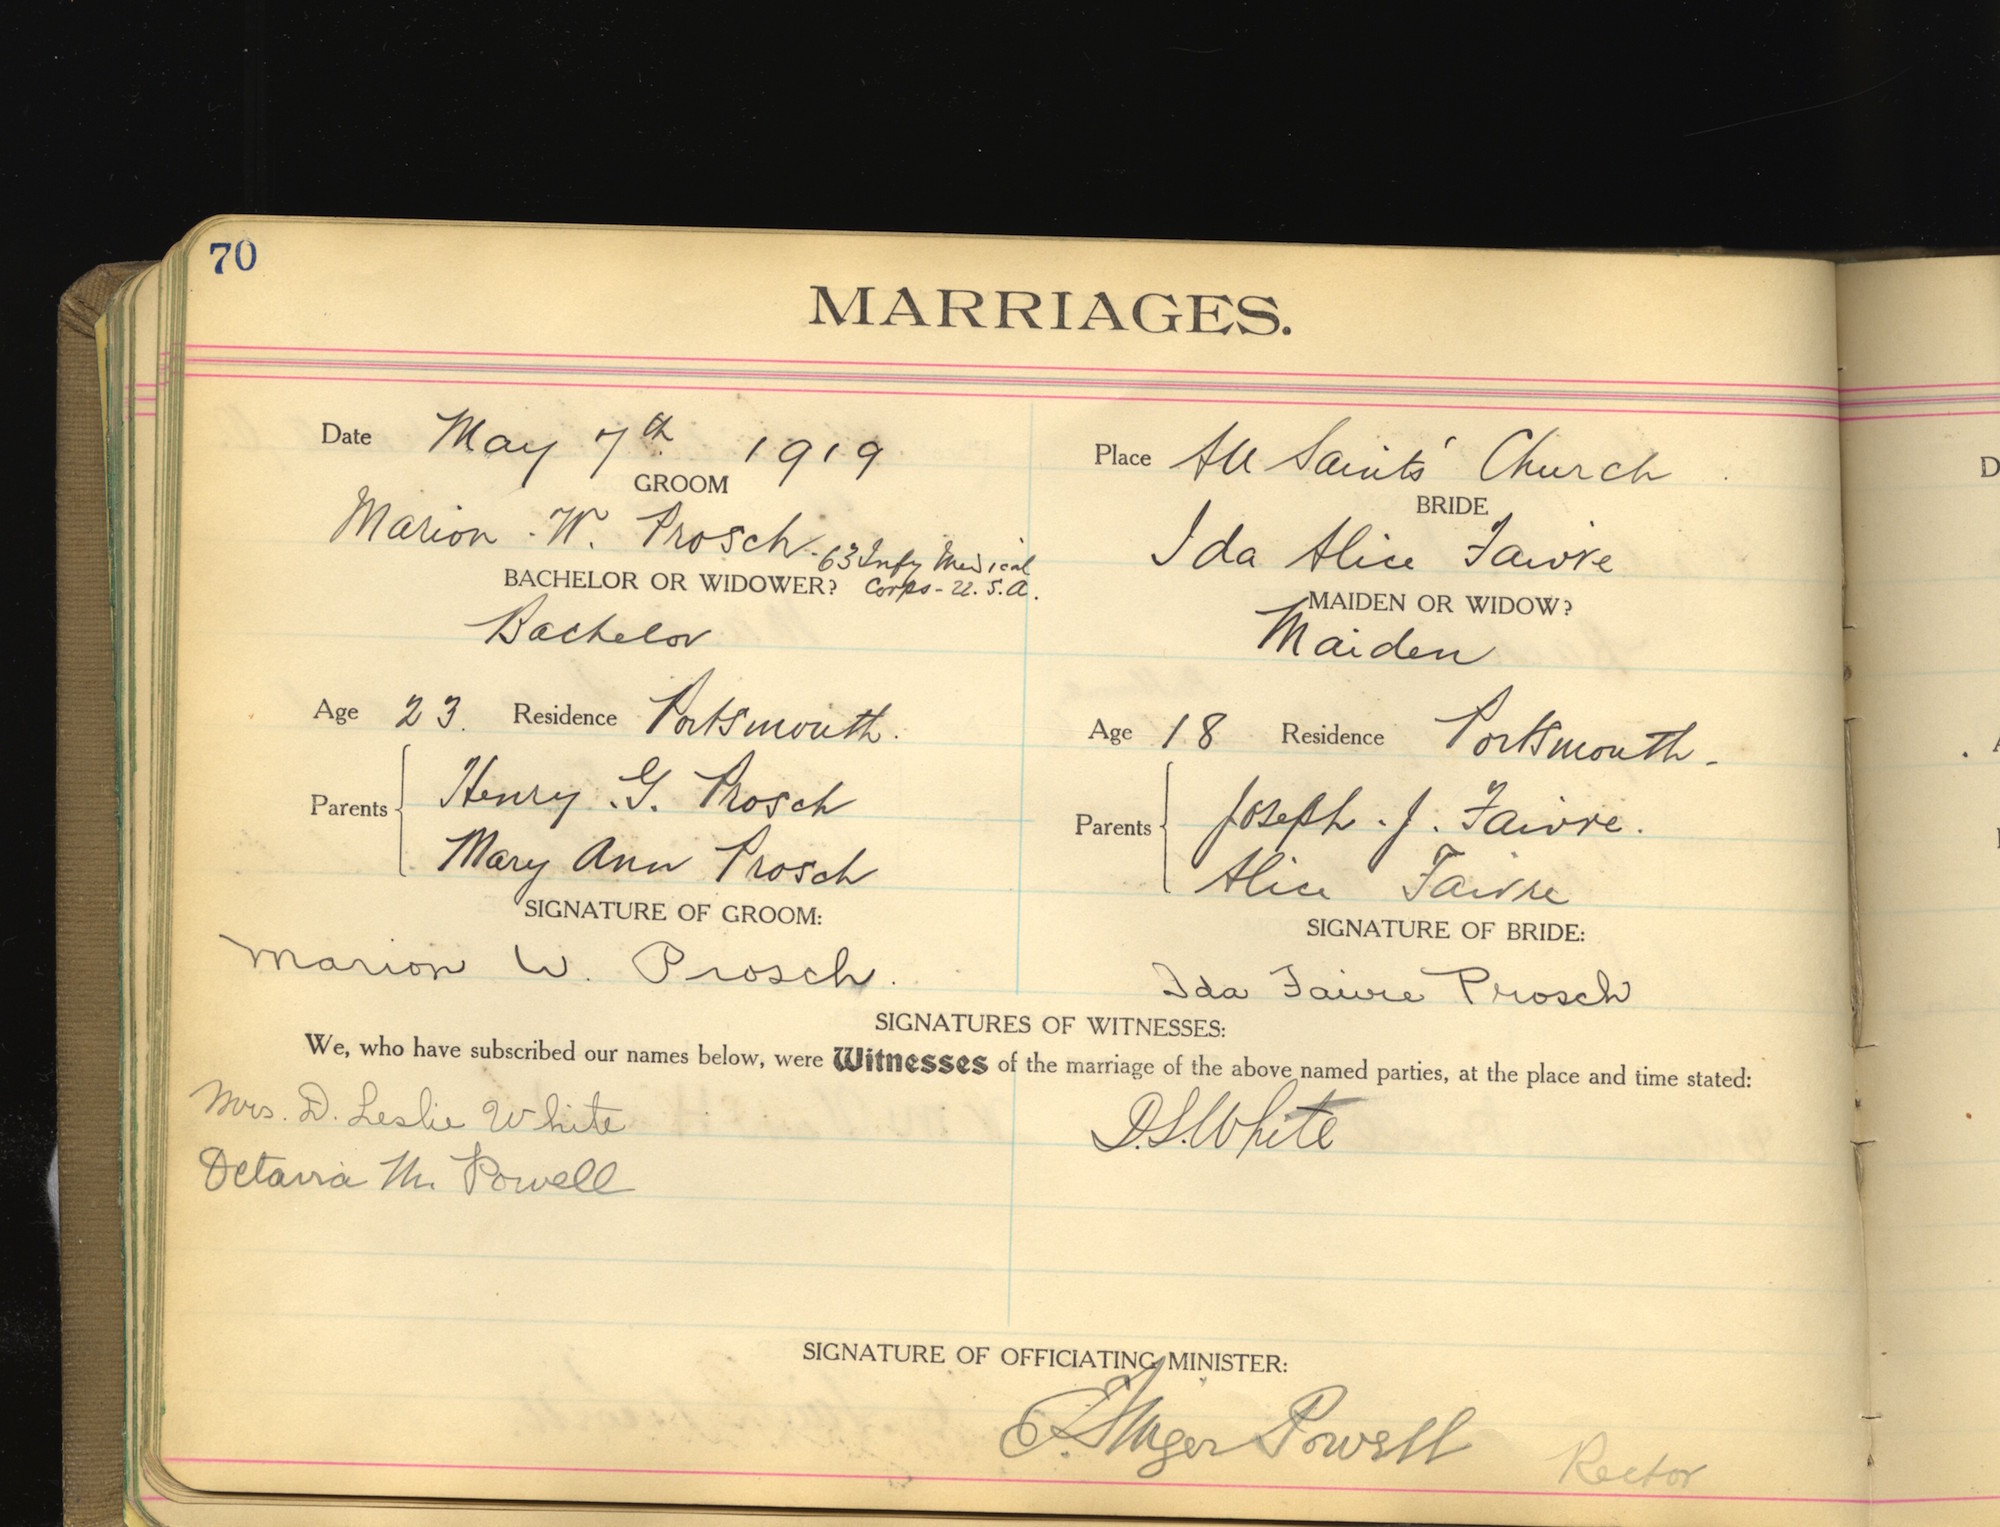 70
MARRIAGES.
Date May 7th 1919
Place All Saints' Church
GROOM
BRIDE
Marion W. Prosch - 63 Infy Medical
Corps - U.S.A.
Ida Alice Faivre
BACHELOR OR WIDOWER?
MAIDEN OR WIDOW?
Bachelor
Maiden
Age 23. Residence Portsmouth.
Age 18 Residence Portsmouth -
Parents
Henry G. Prosch
Mary Ann Prosch
Parents
Joseph J. Faivre.
Alice Faivre
SIGNATURE OF GROOM:
SIGNATURE OF BRIDE:
Marion W. Prosch.
Ida Faivre Prosch
SIGNATURES OF WITNESSES:
We, who have subscribed our names below, were Witnesses of the marriage of the above named parties, at the place and time stated:
Mrs. D. Leslie White
D.L. White
Octavia M. Powell
SIGNATURE OF OFFICIATING MINISTER:
Powell Rector